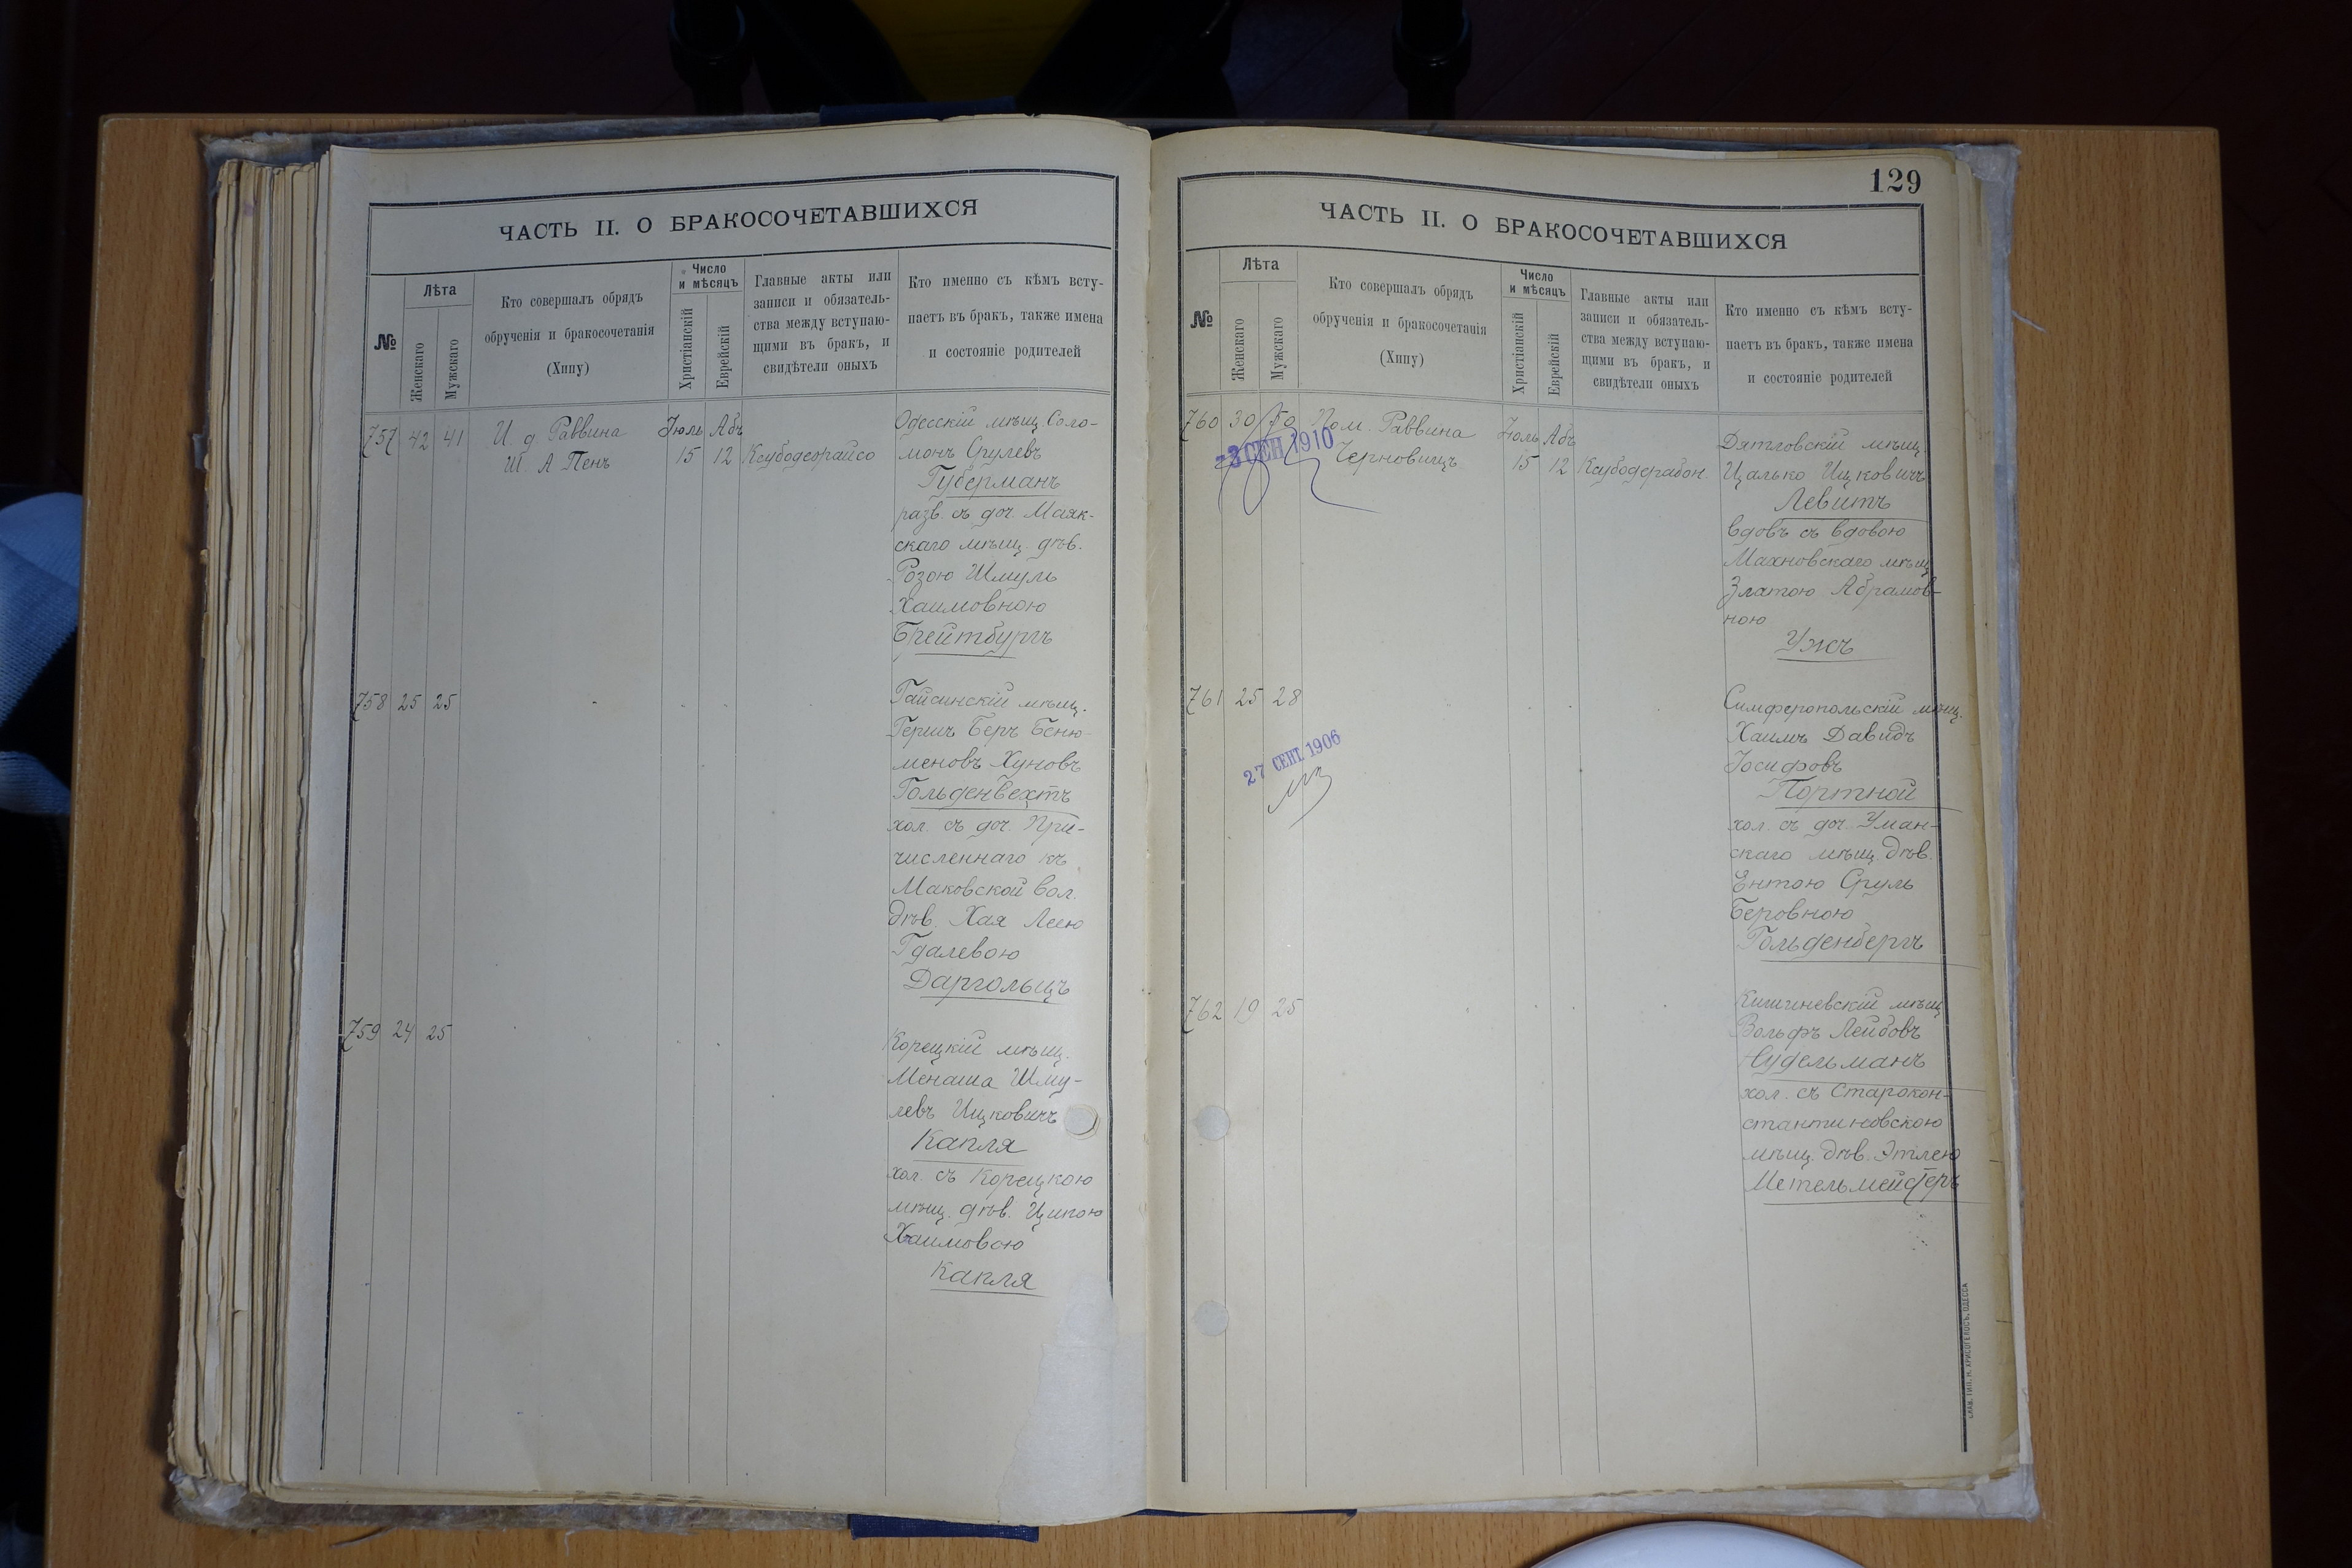 ЧАСТЬ II. О БРАКОСОЧЕТАВШИХСЯ
№
Лѣта
Женскаго
Мужскаго
Кто совершалъ обрядъ
обрученія и бракосочетанія
(Хипу)
Число
и мѣсяцъ
Христіанскій
Еврейскій
Главные акты или
записи и обязатель-
ства между вступаю-
щими въ бракъ, и
свидѣтели оныхъ
Кто именно съ кѣмъ всту-
паетъ въ бракъ, также имена
и состояніе родителей
757 42 41
И. д. Раввина
Ш. А Пенъ
Іюль Абъ
15 12
Одесскій мѣщ. Соло-
монъ Срулевъ
Губерманъ
разв. съ доч. Маяк-
скаго мѣщ. дѣв.
Розою Шмуль
Хаимовною
Брейтбургъ
758 25 25
Гайсинскій мѣщ.
Гершъ Беръ Беню-
меновъ Хуновъ
Гольденвехтъ
хол. съ доч. При-
численнаго къ
Маковской вол.
дѣв. Хая Леею
Гдалевою
Даргольцъ
759 24 25
Корецкій мѣщ.
Менаша Шму-
левъ Ицковичъ
Капля
хол. съ Корецкою
мѣщ. дѣв. Ципою
Хаимовою
Капля
129
ЧАСТЬ II. О БРАКОСОЧЕТАВШИХСЯ
№
Лѣта
Женскаго
Мужскаго
Кто совершалъ обрядъ
обрученія и бракосочетанія
(Хипу)
Число
и мѣсяцъ
Христіанскій
Еврейскій
Главные акты или
записи и обязатель-
ства между вступаю-
щими въ бракъ, и
свидѣтели оныхъ
Кто именно съ кѣмъ всту-
паетъ въ бракъ, также имена
и состояніе родителей
760 30 50
Пом. Раввина
Черновицъ
Іюль Абъ
15 12
-3 СЕН 1910
Дятловскій мѣщ.
Цалько Ицковичъ
Левитъ
вдовъ съ вдовою
Махновскаго мѣщ
Златою Абрамов-
ною
Ужъ
761 25 28
27 СЕНТ. 1906
Симферопольскій мѣщ.
Хаимъ Давидъ
Іосифовъ
Портной
хол. съ доч. Уман-
скаго мѣщ. дѣв.
Ентою Сруль
Беровною
Гольденбергъ
762 19 25
Кишиневскій мѣщ
Вольфъ Лейбовъ
Нудельманъ
хол. съ Старокон-
стантиновскою
мѣщ. дѣв. Этлею
СЛАВ. ТИП. Н. ХРИСОГЕЛОСЪ, ОДЕССА